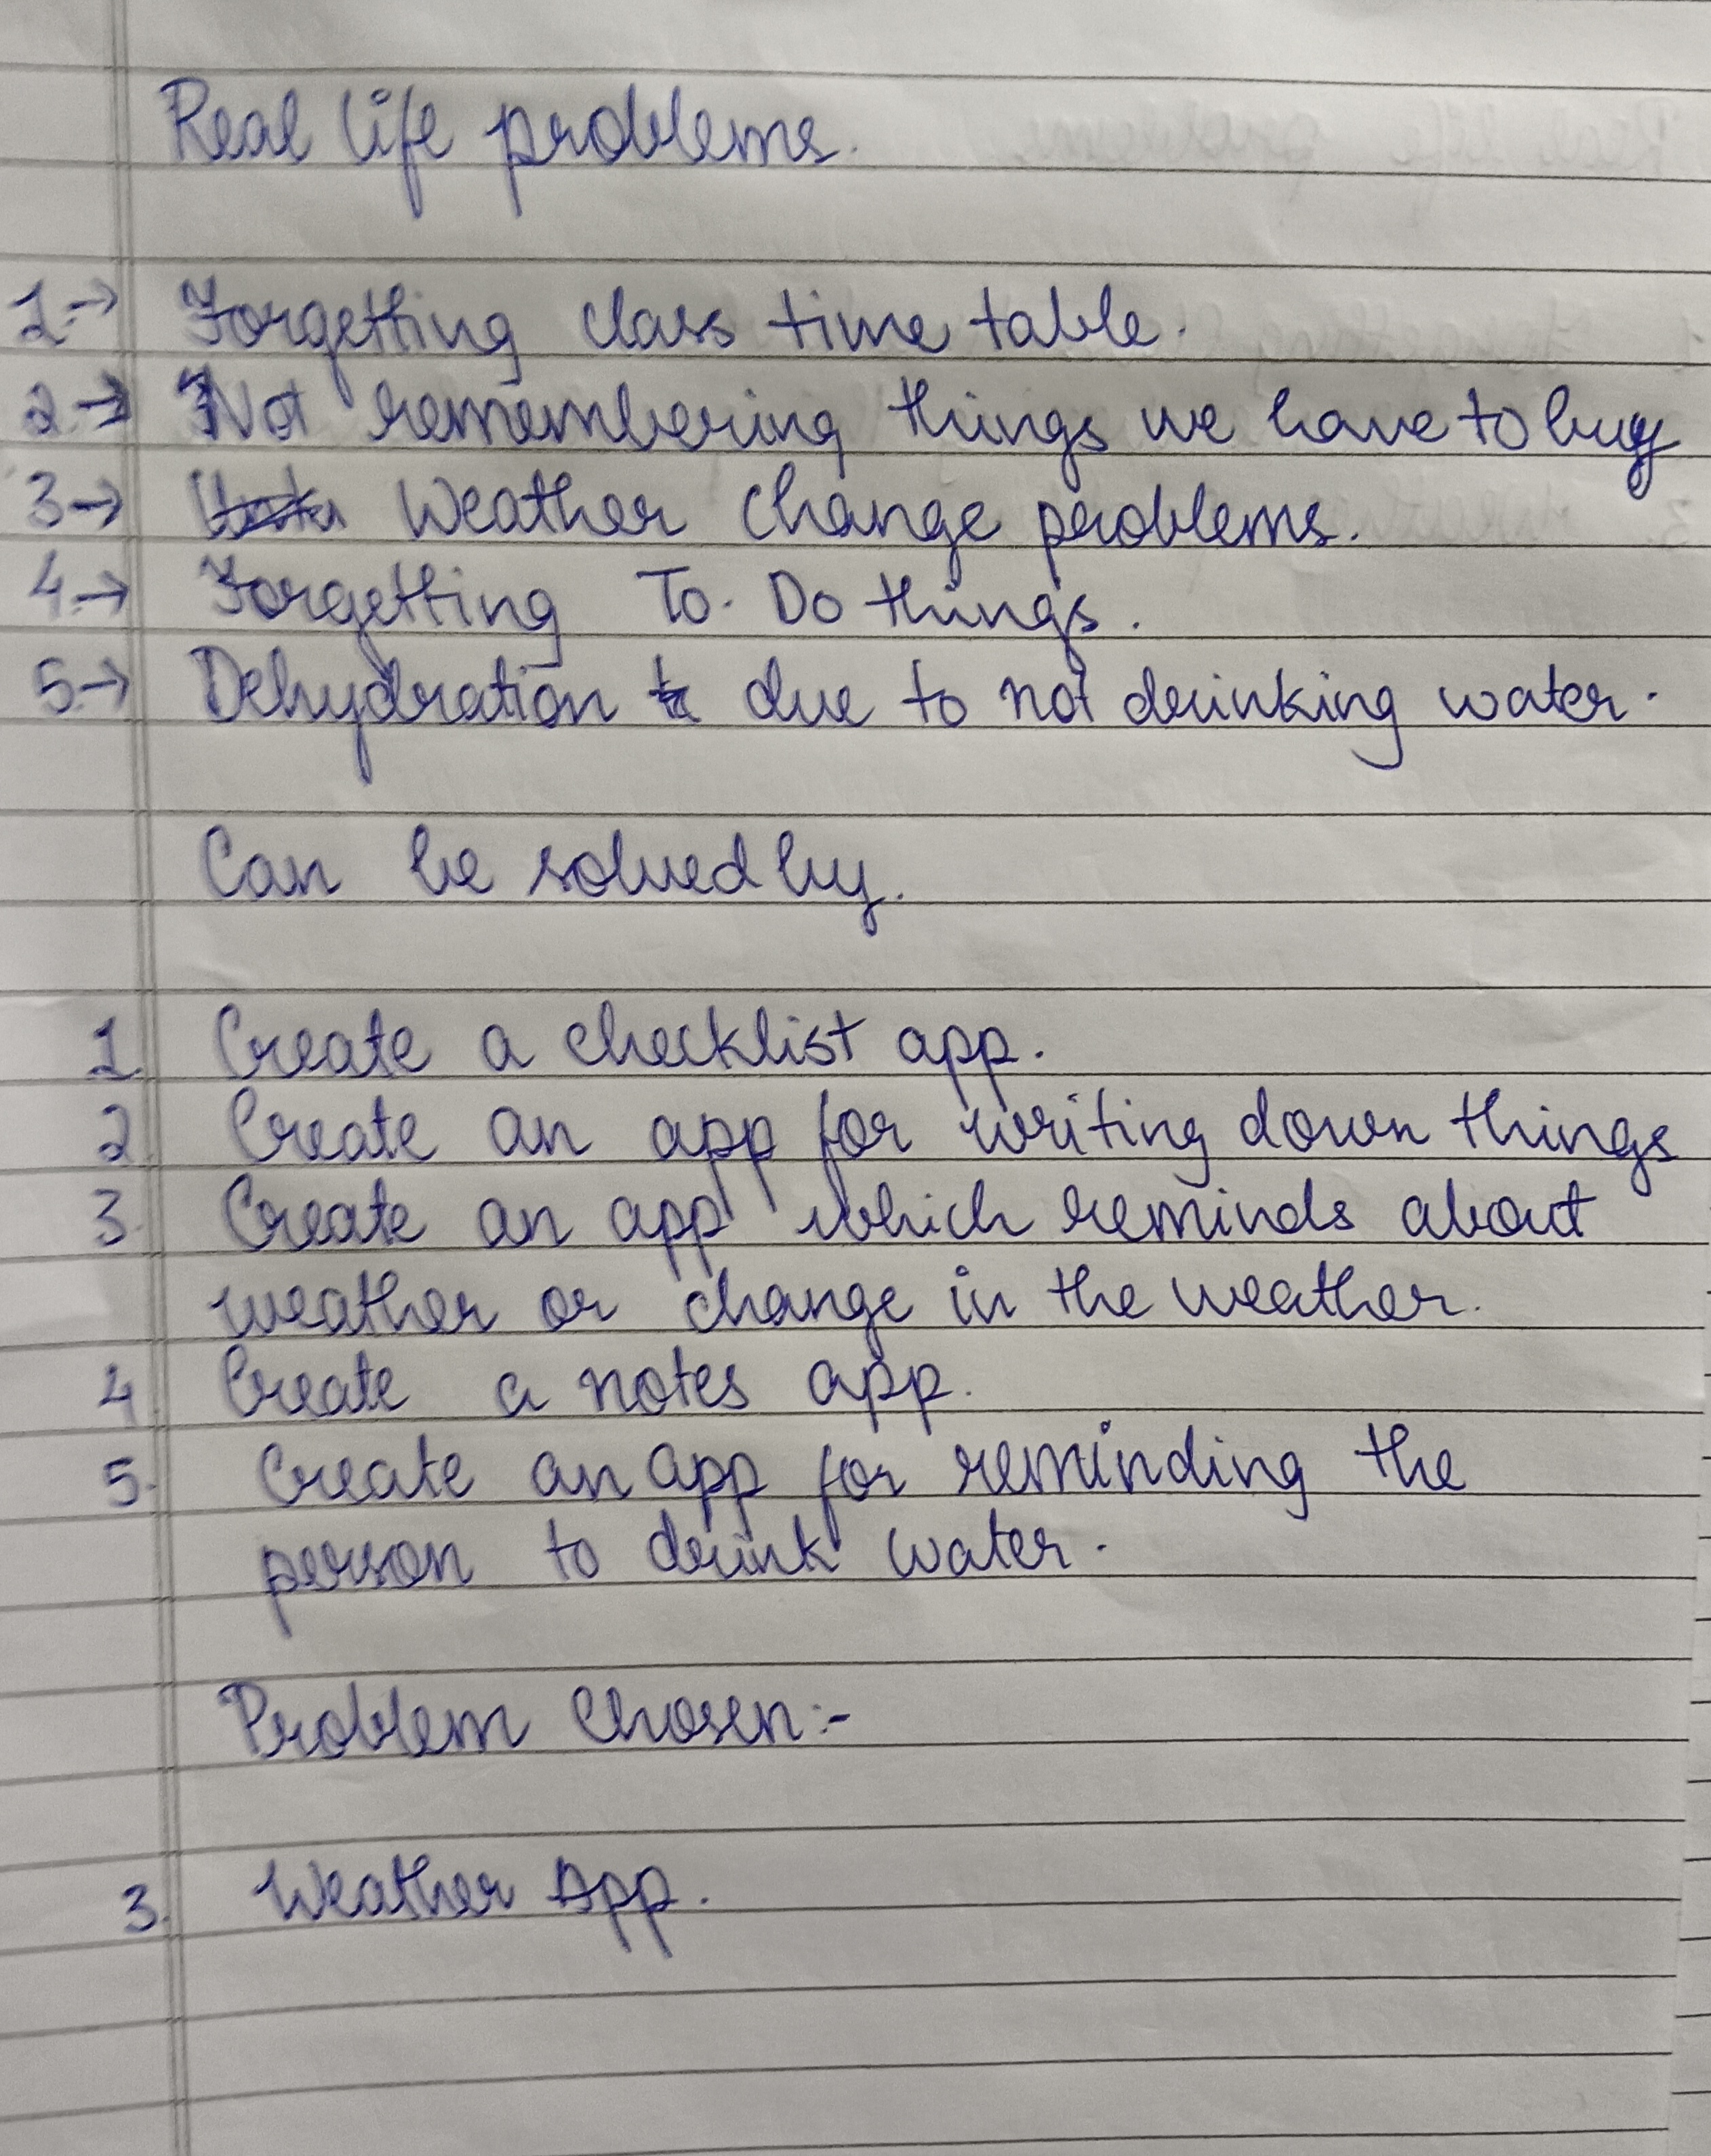 Real life problems.
1.→ Forgetting class time table.
2.→ Not remembering things we have to buy
3→ Weather change problems.
4.→ Forgetting To. Do things.
5.→ Dehydration due to not drinking water.
Can be solved by.
1. Create a checklist app.
2 Create an app for writing down things
3. Create an app which reminds about
weather or change in the weather.
4. Create a notes app.
5. Create an app for reminding the
person to drink water.
Problem Chosen:-
3. Weather App.